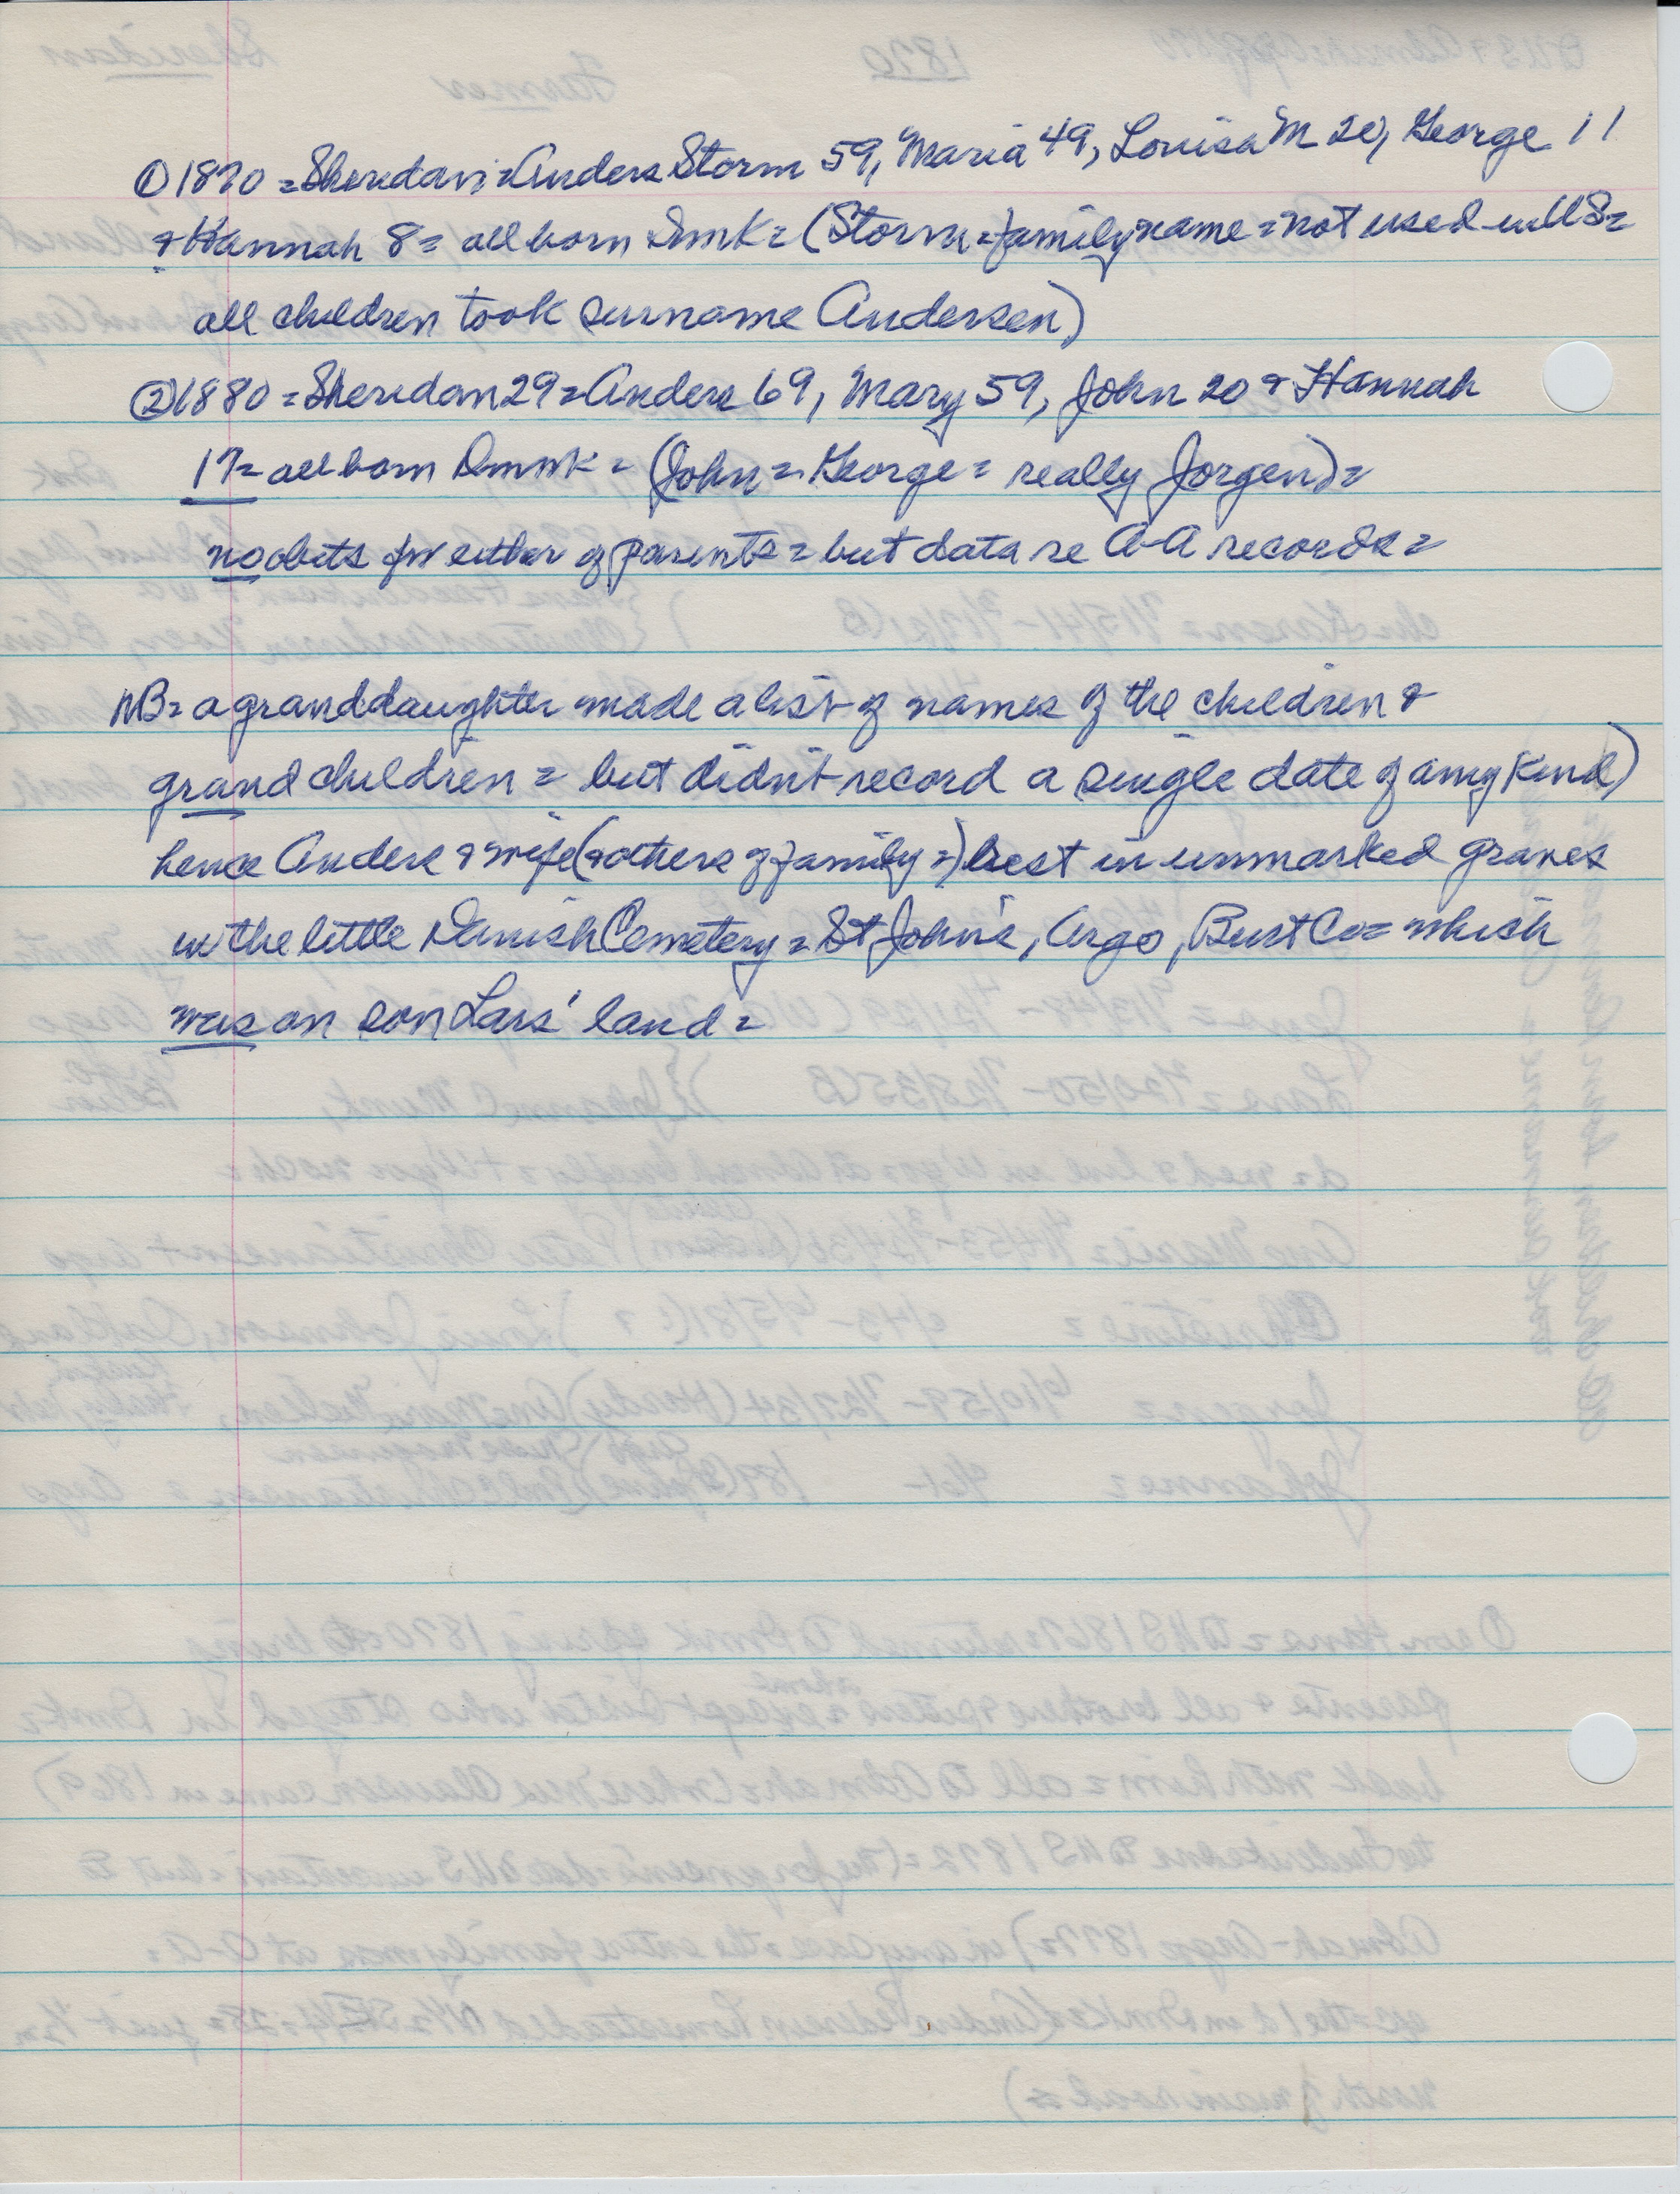 ① 1870 = Sheridan = Anders Storm 59, Maria 49, Louisa M 20, George 11
+ Hannah 8 = all born Dmk = (Storm = family name = not used in US =
all children took surname Andersen)
② 1880 = Sheridan 29 = Anders 69, Mary 59, John 20 + Hannah
17 = all born Dmk = (John = George = really Jorgen) =
no obits for either of parents = but data re A-A records =
NB = a granddaughter made a list of names of the children +
grandchildren = but didn't record a single date of any kind)
hence Anders + wife (+ others of family =) rest in unmarked graves
in the little Danish Cemetery = St John's, Argo, Burt Co = which
was on son Lars' land =